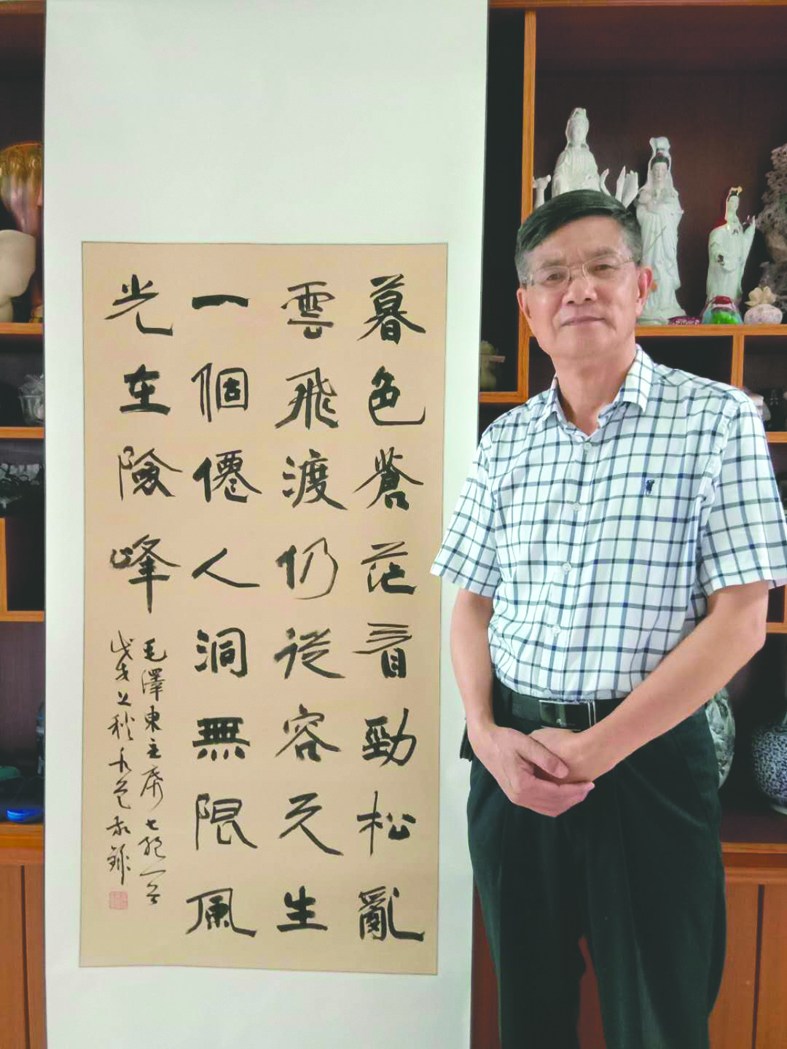 暮色蒼茫看勁松亂
雲飛渡仍從容天生
一個僊人洞無限風
光在險峰
毛澤東主席七絕一首
戊戌 秋